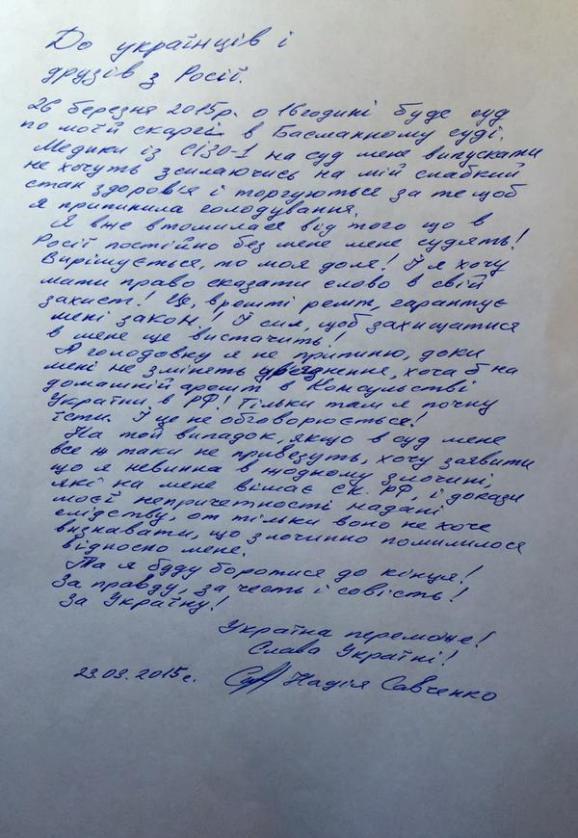 До українців і
друзів з Росії.
26 березня 2015р. о 16 годині буде суд
по моїй скаргі в Басманному суді.
Медики із СІЗО-1 на суд мене випускати
не хочуть зсилаючись на мій слабкий
стан здоров'я і торгуються за те щоб
я припинила голодування.
Я вже втомилася від того що в
Росії постійно без мене мене судять!
Вирішується, то моя доля! І я хочу
мати право сказати слово в свій
захист! Це, врешті решт, гарантує
мені закон! І сил, щоб захищатися
в мене ще вистачить!
А голодовку я не припиню, доки
мені не змінять ув'язнення, хоча б на
домашній арешт в Консульстві
України в РФ! Тільки там я почну
їсти. І це не обговорюється!
На той випадок, якщо в суд мене
все ж таки не привезуть, хочу заявити
що я невинна в жодному злочині,
які на мене вішає СК. РФ, і докази
моєї непричетності надані
слідству, от тільки воно не хоче
визнавати, що злочинно помилилося
відносно мене.
Та я буду боротися до кінця!
За правду, за честь і совість!
За Україну!
Україна переможе!
Слава Україні!
23.03.2015г. Надія Савченко